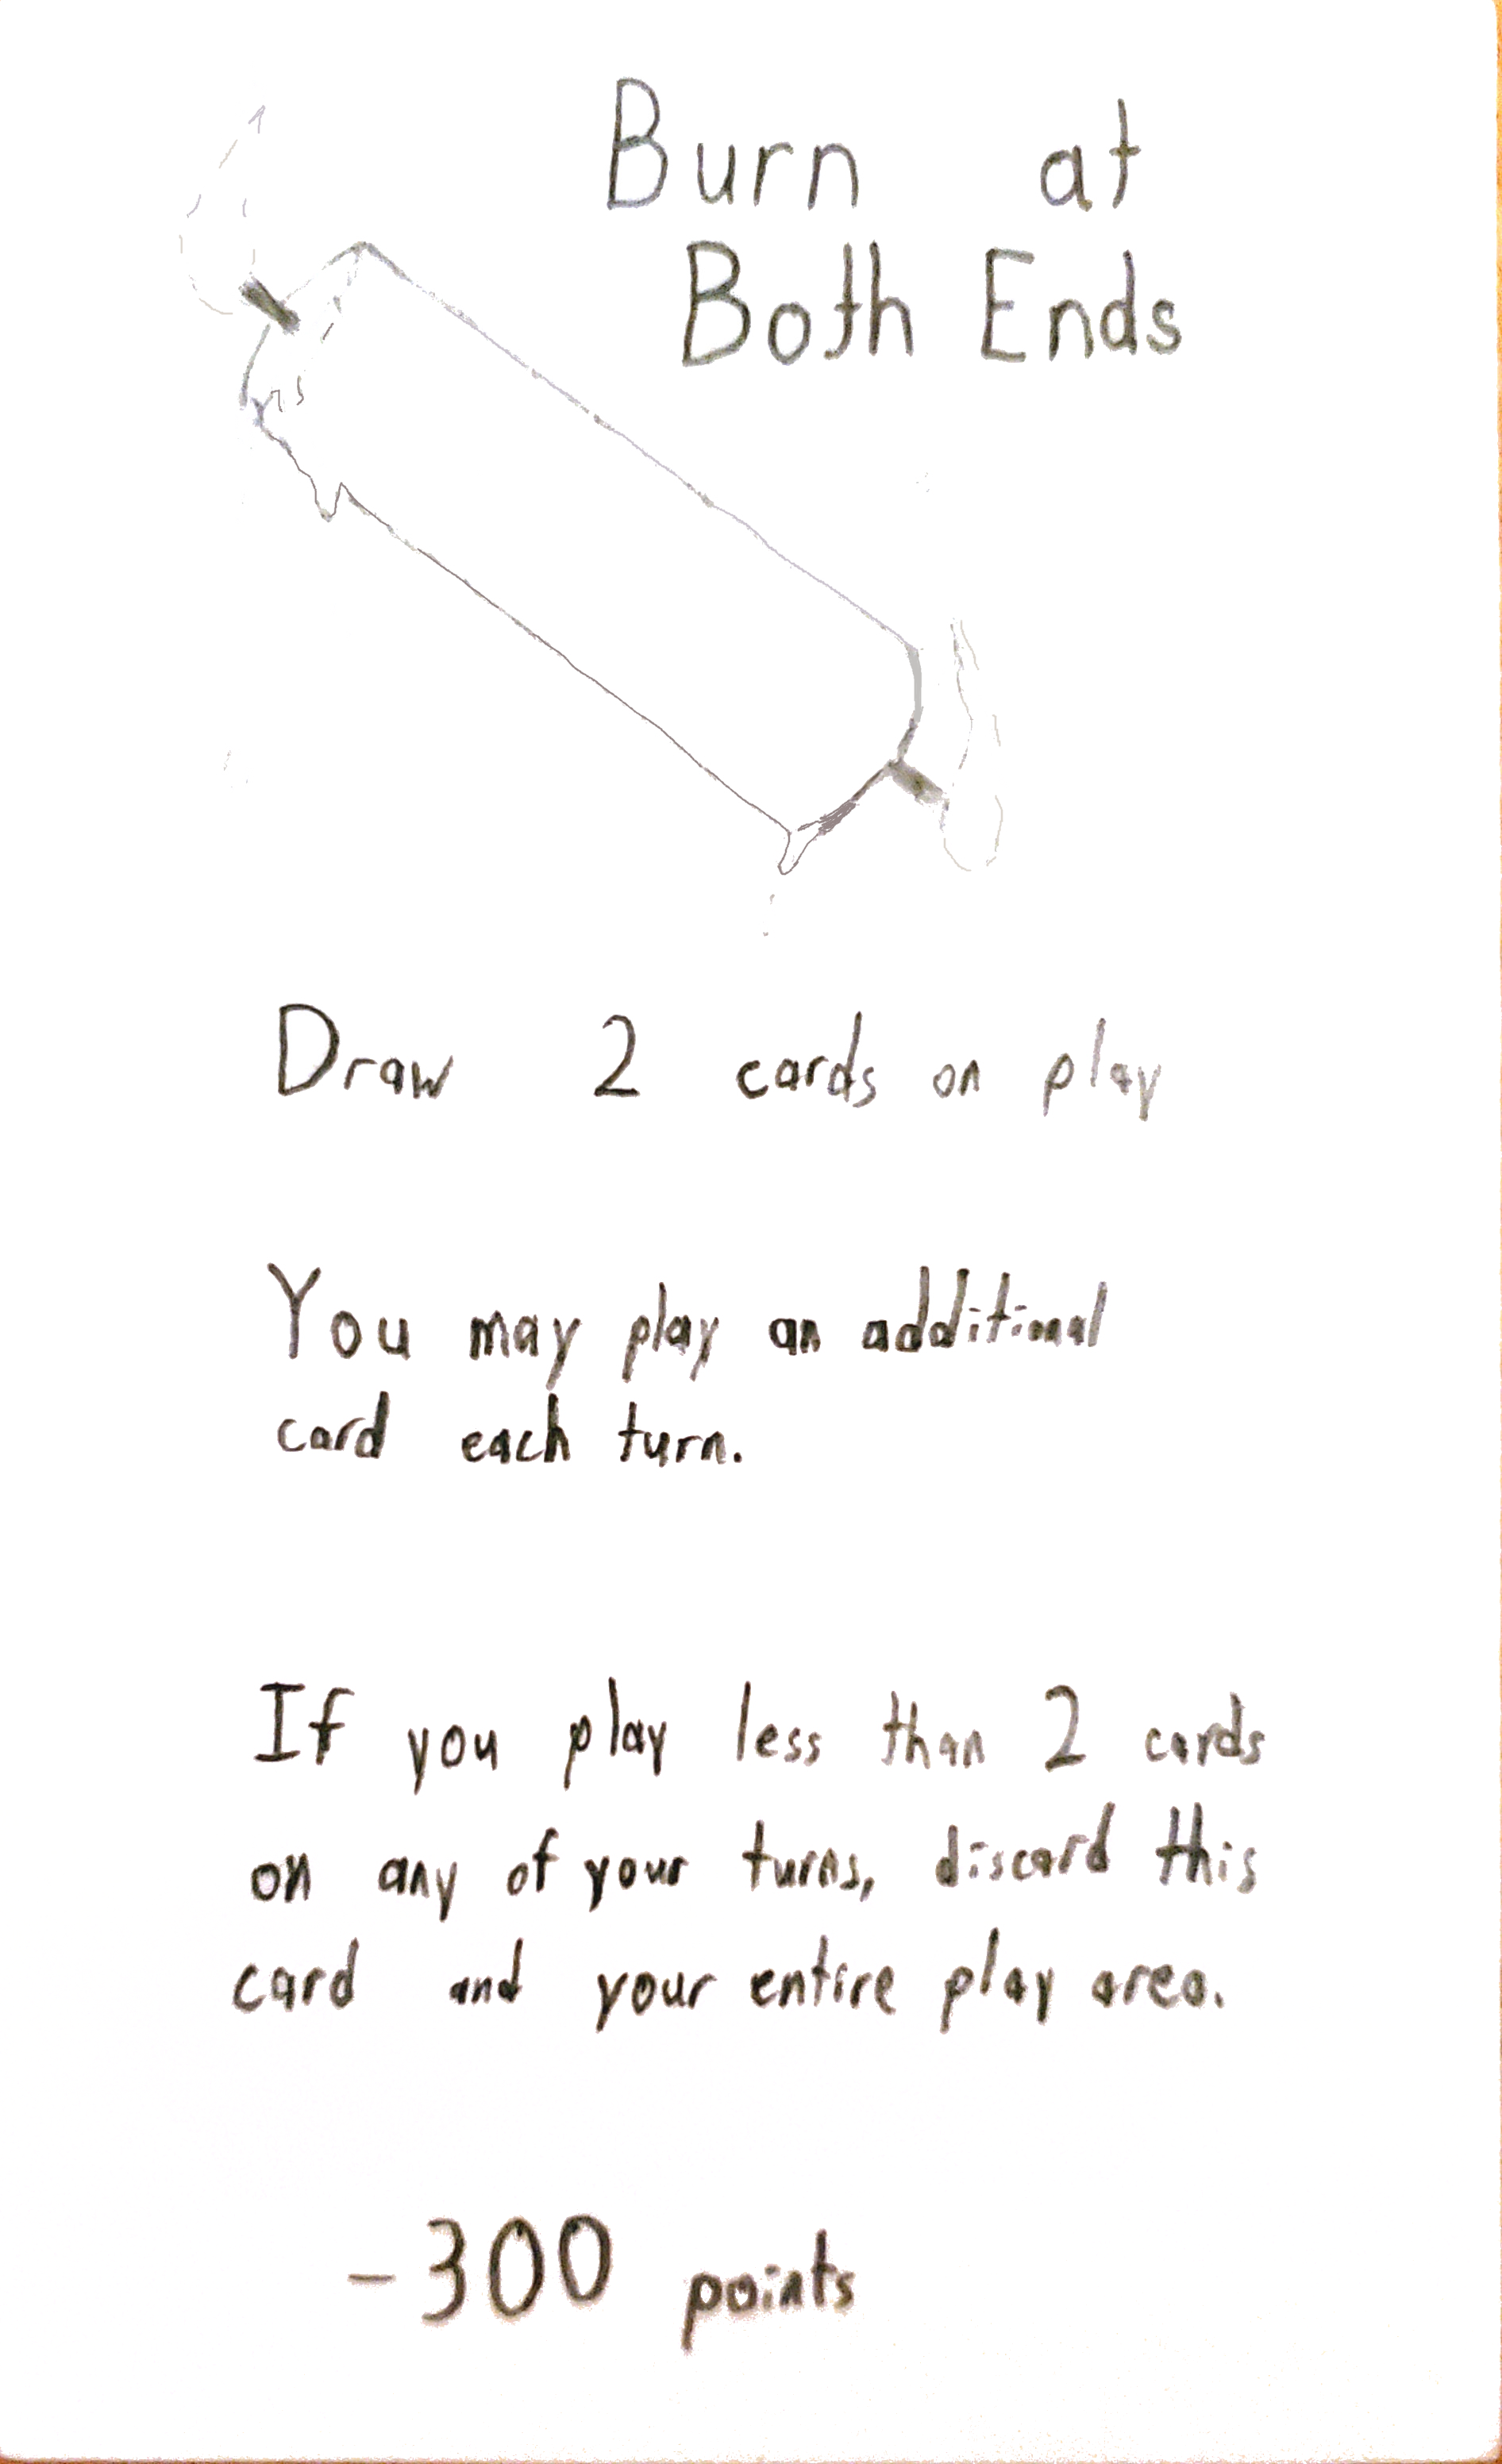 Burn at
Both Ends
Draw 2 cards on play
You may play an additional
card each turn.
If you play less than 2 cards
on any of your turns, discard this
card and your entire play area.
-300 points